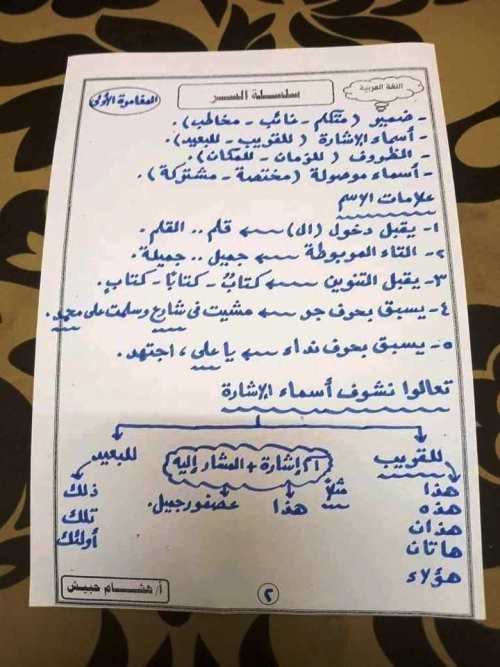 اللغة العربية
سلسلة السر
المغامرة الأولى
- ضمير ( متكلم - غائب - مخاطب ).
- أسماء الإشارة ( للقريب - للبعيد ).
- الظروف ( للزمان - للمكان ).
- أسماء موصولة ( مختصة - مشتركة ).
علامات الاسم
١- يقبل دخول (ال) ← قلم .. القلم .
٢- التاء المربوطة ← جميل .. جميلة .
٣- يقبل التنوين ← كتابٌ - كتابًا - كتابٍ .
٤- يسبق بحرف جر ← مشيت فى شارع وسلمت على محمد .
٥- يسبق بحرف نداء ← يا على ، اجتهد .
تعالوا نشوف أسماء الإشارة
للقريب
ا/إشارة + المشار إليه
للبعيد
هذا
مثلاً هذا عصفور جميل .
ذلك
هذه
تلك
هذان
أولئك
هاتان
هؤلاء
٢
أ/ هشام حبيش